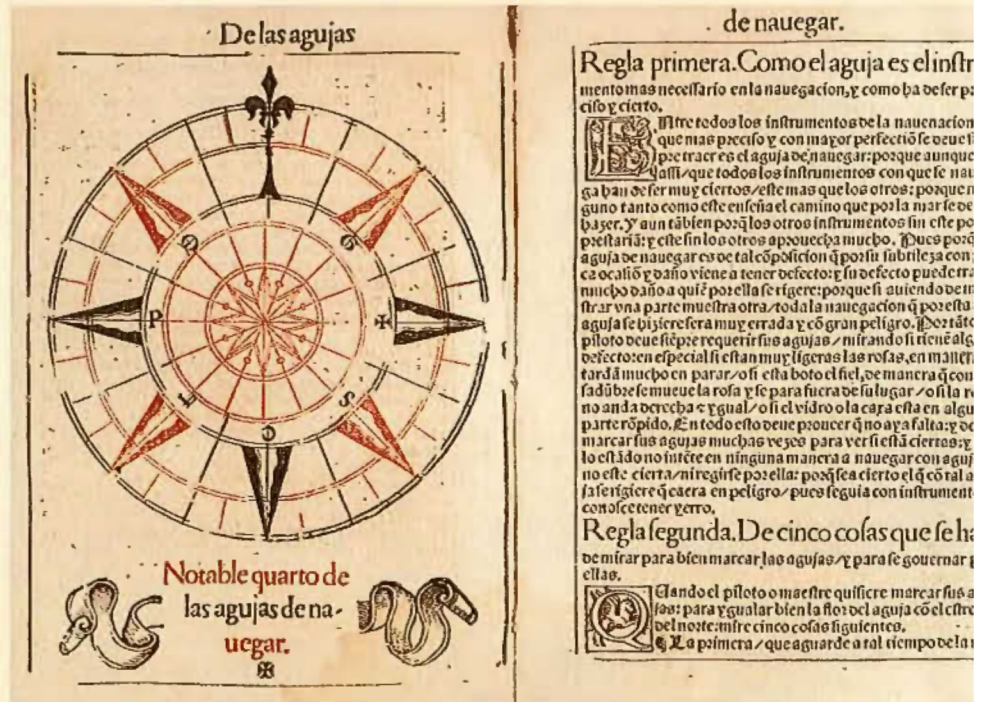 De las agujas
G
S
O
P
Notable quarto de
las agujas de na-
uegar.
de nauegar.
Regla primera. Como el aguja es el inſtr
mento mas neceſſario en la nauegacion, y como ha de ſer
ciſo y cierto.
Entre todos los inſtrumentos de la nauenacion
que mas preciſo y con mayor perfectiõ ſe deue
pre traer es el aguja de nauegar: porque aunque
aſſi/que todos los inſtrumentos con que ſe nau
ga han de ſer muy ciertos/eſte mas que los otros: porque n
guno tanto como eſte enſeña el camino que por la mar ſe de
hazer. Y aun tãbien porq̃ los otros inſtrumentos ſin eſte po
preſtariã: y eſte ſin los otros aprouecha mucho. Pues porq̃
aguja de nauegar es de tal cõpoſicion q̃ por ſu ſubtileza con
ca ocaſiõ y daño viene a tener defecto: y ſu defecto puede tra
mucho daño a quiẽ por ella ſe rigere: porque ſi auiendo de m
ſtrar vna parte mueſtra otra/toda la nauegacion q̃ por eſta
aguja ſe hiziere ſera muy errada y cõ gran peligro. Por tãto
piloto deue ſiẽpre requerir ſus agujas/mirando ſi tienẽ alg
defecto: en eſpecial ſi eſtan muy ligeras las roſas, en maner
tardã mucho en parar/o ſi eſta boto el fiel, de manera q̃ con
ſadũbre ſe mueue la roſa y ſe para fuera de ſu lugar/o ſi la r
no anda derecha y ygual/o ſi el vidro o la caxa eſta en algu
parte rõpido. En todo eſto deue proueer q̃ no aya falta: y de
marcar ſus agujas muchas vezes para ver ſi eſtã ciertas: y
lo eſtãdo no intẽte en ninguna manera a nauegar con aguj
no eſte cierta/ni regirſe por ella: porq̃ ſea cierto el q̃ cõ tal a
ja ſe rigiere q̃ caera en peligro/pues ſeguia con inſtrument
conoſce tener yerro.
Regla ſegunda. De cinco coſas que ſe ha
de mirar para bien marcar las agujas/y para ſe gouernar
ellas.
Quando el piloto o maeſtre quiſiere marcar ſus a
jas: para ygualar bien la flor del aguja cõ el eſtre
del norte: mire cinco coſas ſiguientes.
La primera/que aguarde a tal tiempo de la